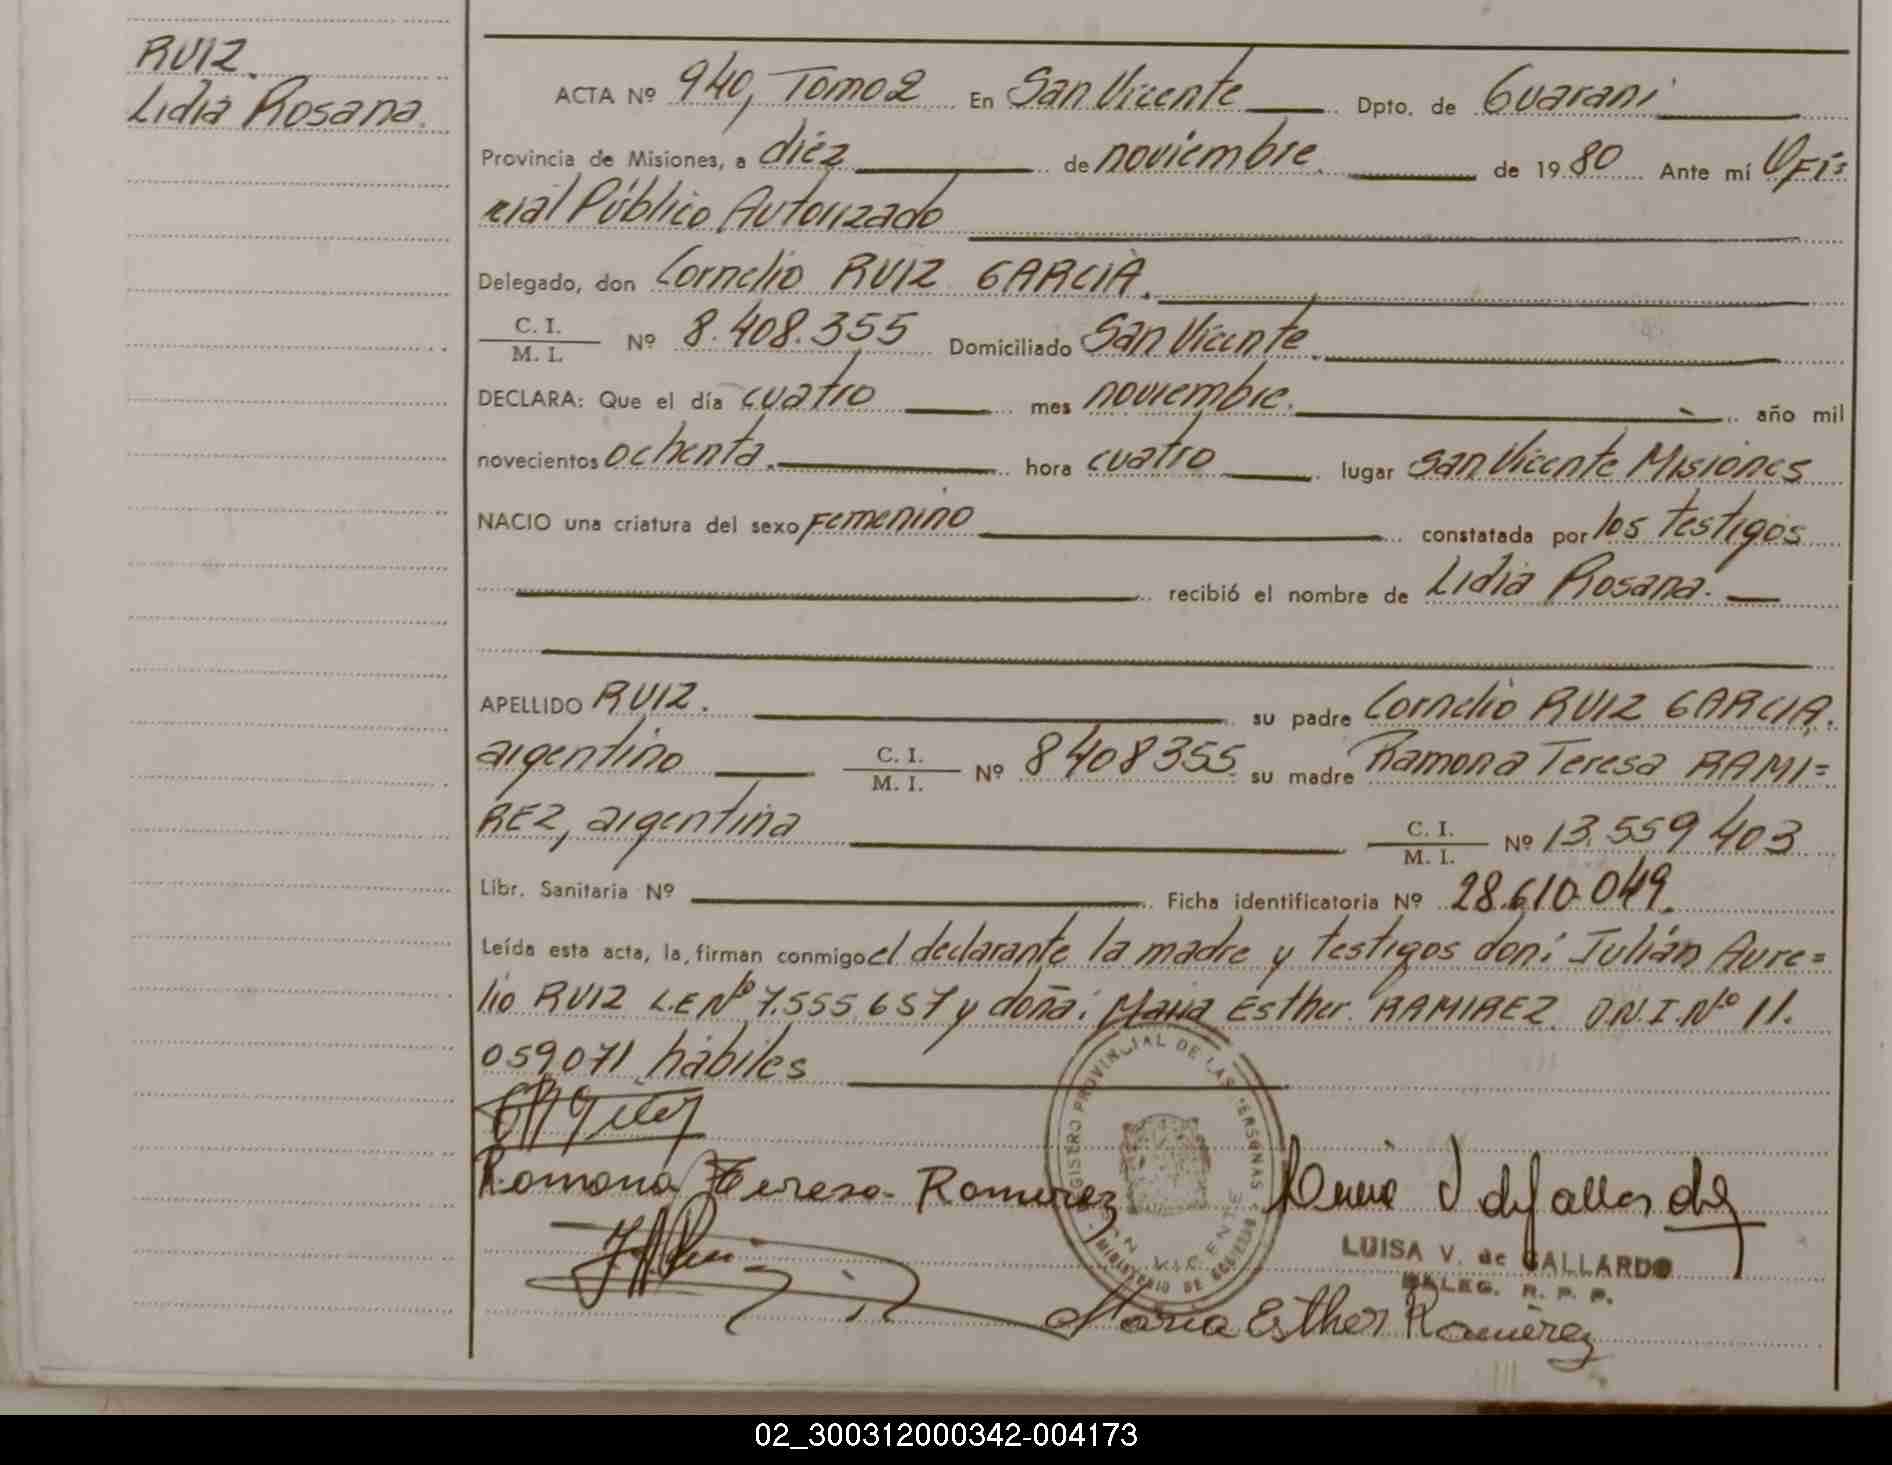 RUIZ.
Lidia Rosana.
ACTA Nº 940, Tomo 2 En San Vicente Dpto. de Guaraní
Provincia de Misiones, a diéz de noviembre. de 1980 Ante mí Ofi=
cial Público Autorizado
Delegado, don Cornelio RUIZ GARCIA.
C. I.
M. I. Nº 8.408.355 Domiciliado San Vicente.
DECLARA: Que el día cuatro mes noviembre. año mil
novecientos ochenta. hora cuatro lugar San Vicente Misiones
NACIO una criatura del sexo Femenino constatada por los testigos
recibió el nombre de Lidia Rosana.
APELLIDO RUIZ. su padre Cornelio RUIZ GARCIA,
argentino C. I.
M. I. Nº 8408355 su madre Ramona Teresa RAMI=
REZ, argentina C. I.
M. I. Nº 13.559 403
Libr. Sanitaria Nº Ficha identificatoria Nº 28.610.049.
Leída esta acta, la firman conmigo el declarante la madre y testigos don: Julián Aure=
lio RUIZ L.E Nº 7.555.657 y doña: Maria Esther. RAMIREZ. D.N.I. Nº 11.
059071 hábiles
REGISTRO PROVINCIAL DE LAS PERSONAS
SAN VICENTE
MINISTERIO DE GOBIERNO
Ramona Teresa Ramirez
LUISA V. de GALLARDO
DELEG. R. P. P.
Maria Esther Ramirez
02_300312000342-004173